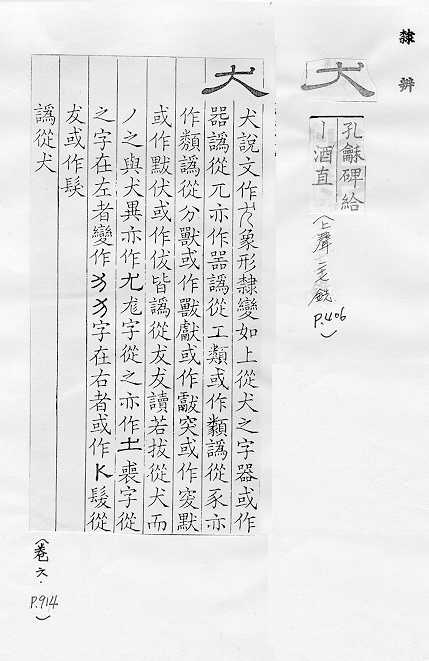 隸辨
犬
孔龢碑給
丨酒直
(上聲・銑
P.406)
犬
犬說文作犬象形隸變如上從犬之字器或作
器譌從兀亦作噐譌從工類或作䫋譌從豕亦
作類譌從分獸或作獸獻或作獻突或作突默
或作默伏或作伏皆譌從犮犮讀若拔從犬而
丿之與犬異亦作尤尨字從之亦作土裘字從
之字在左者變作犭犭字在右者或作K髮從
犮或作髮
譌從犬
(卷六.
P.914)